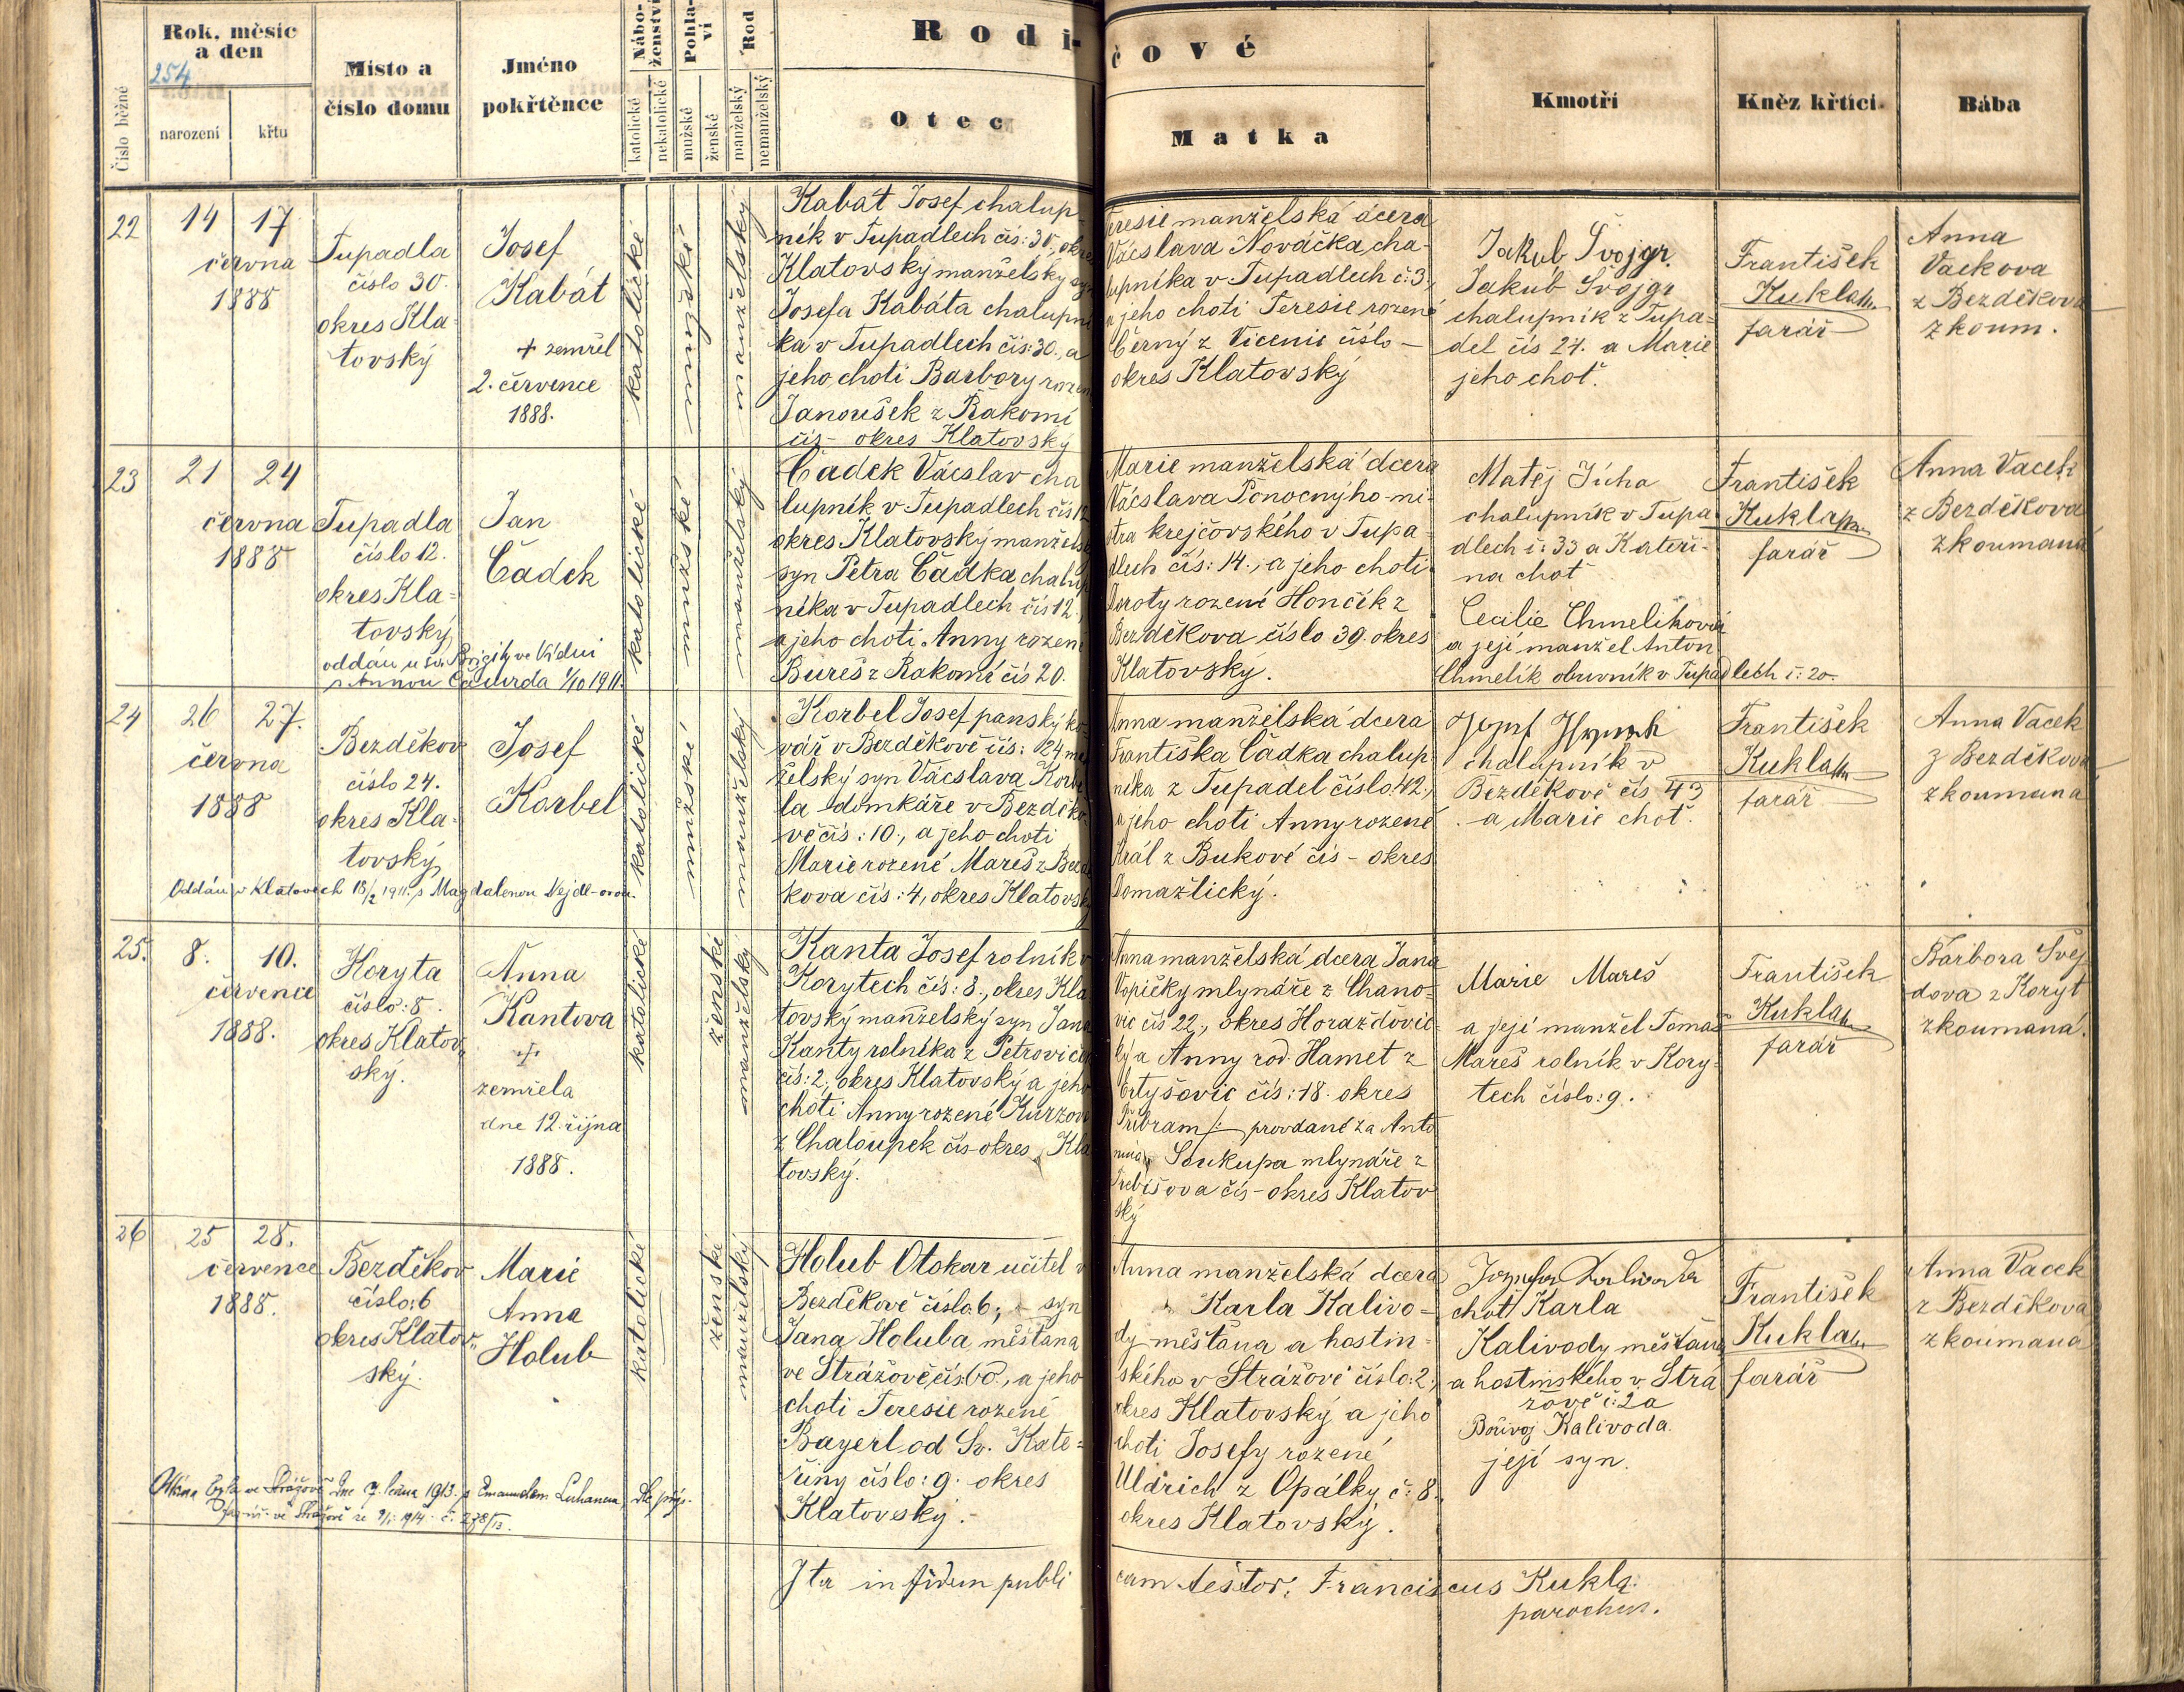 Číslo běžné
Rok, měsíc
a den
254
narození
křtu
Místo a
číslo domu
Jméno
pokřtěnce
Nábo-
ženství
katolické
nekatolické
Pohla-
ví
mužské
ženské
Rod
manželský
nemanželský
Rodi-
čové
Otec
Matka
Kmotři
Kněz křtící
Bába
22
14 17
června
1888
Tupadla
číslo 30.
okres Kla-
tovský
Josef
Kabát
+ zemřel
2. července
1888.
katolické
mužské
manželský
Kabát Josef chalup-
ník v Tupadlech čís: 30,
Klatovský manželský
Josefa Kabáta
ka v Tupadlech čís: 30., a
jeho choti Barbory
Janoušek z Řakomí
čís - okres Klatovský
manželská dcera
Václava Nováčka cha-
lupníka v Tupadlech č: 3,
a jeho choti Teresie rozené
Černý z Vícenic číslo -
okres Klatovský
Jakub Švojgr.
Jakub Švojgr
chalupník z Tupa-
del čís 27. a Marie
jeho choť.
František
Kukla
farář
Anna
Vackova
z Bezděkova
zkoum.
23
21 24
června
1888
Tupadla
číslo 12.
okres Kla-
tovský
oddán u sv. Brigity ve Vídni
s Annou 1/10 1911.
Jan
Čadek
katolické
mužské
manželský
Čadek Václav cha
lupník v Tupadlech čís 12
okres Klatovský
syn Petra Čadka
níka v Tupadlech čís 12.,
a jeho choti Anny rozené
Bureš z Řakomí čís 20.
Marie manželská dcera
Václava Ponocnýho mi-
stra krejčovského v Tupa-
dlech čís: 14., a jeho choti
Doroty rozené Hončík z
Bezděkova číslo 39. okres
Klatovský.
Matěj Jícha
chalupník v Tupa-
dlech č: 33 a Kateři-
na choť
Cecilie Chmelíková
a její manžel Anton
Chmelík obuvník v Tupadlech č: 20.
František
Kukla
farář
Anna Vacek
z Bezděkova
zkoumaná
24
26 27.
června
1888
Bezděkov
číslo 24.
okres Kla-
tovský
Oddán v Klatovech 13/2 1911. s Magdalenou Vejdl-ovou.
Josef
Korbel
katolické
mužské
manželský
Korbel Josef panský ko-
vář v Bezděkově čís: 24
želský syn Václava
la domkáře v Bezděko-
vě čís: 10., a jeho choti
Marie rozené Mareš z
kova čís: 4, okres Klatovský
Anna manželská dcera
Františka Čadka chalup-
níka z Tupadel číslo: 12.,
a jeho choti Anny rozené
Král z Bukové čís - okres
Domažlický.
chalupník v
Bezděkově čís 43
a Marie choť.
František
Kukla
farář
Anna Vacek
z Bezděkova
zkoumaná
25.
8. 10.
července
1888.
Koryta
číslo: 8.
okres Klatov-
ský.
Anna
Kantova
+
zemřela
dne 12. října
1888.
katolické
ženské
manželský
Kanta Josef rolník v
Korytech čís: 8., okres Kla
tovský manželský syn Jana
Kanty rolníka z
čís: 2, okres Klatovský a jeho
choti Anny rozené Kurzove
z Chaloupek čís - okres Kla
tovský.
Anna manželská dcera Jana
Vopičky mlynáře z Chano-
vic čís 22., okres Horažďovic-
ký a Anny rod. Hamet z
čís: 18. okres
Příbram /: provdané za Anto
nína Soukupa mlynáře z
čís - okres Klatov
ský
Marie Mareš
a její manžel Tomáš
Mareš rolník v Kory-
tech číslo: 9.
František
Kukla
farář
Barbora Švej-
dova z Koryt
zkoumaná.
26
25 28.
července
1888.
Bezděkov
číslo: 6
okres Klatov-
ský.
Marie
Anna
Holub
katolické
ženské
manželský
Holub Otokar učitel v
Bezděkově číslo 6., - syn
Jana Holuba měšťana
ve Strážově, a jeho
choti Teresie rozené
Bayerl od Sv. Kate-
řiny číslo: 9. okres
Klatovský.
Anna manželská dcera
Karla Kalivo-
dy měšťana a hostin-
ského v Strážově číslo: 2.,
okres Klatovský a jeho
choti Josefy rozené
Uldrich z Opálky č: 8.
okres Klatovský.
choť Karla
Kalivody měšťana
a hostinského v Strá
žově č: 2 a
Bořivoj Kalivoda
její syn.
František
Kukla
farář
Anna Vacek
z Bezděkova
zkoumaná
ve Strážově dne 1913. s
ve Strážově 1914 č. 278/13.
Ita in fidem publi
cam testor. Franciscus Kukla
parochus.